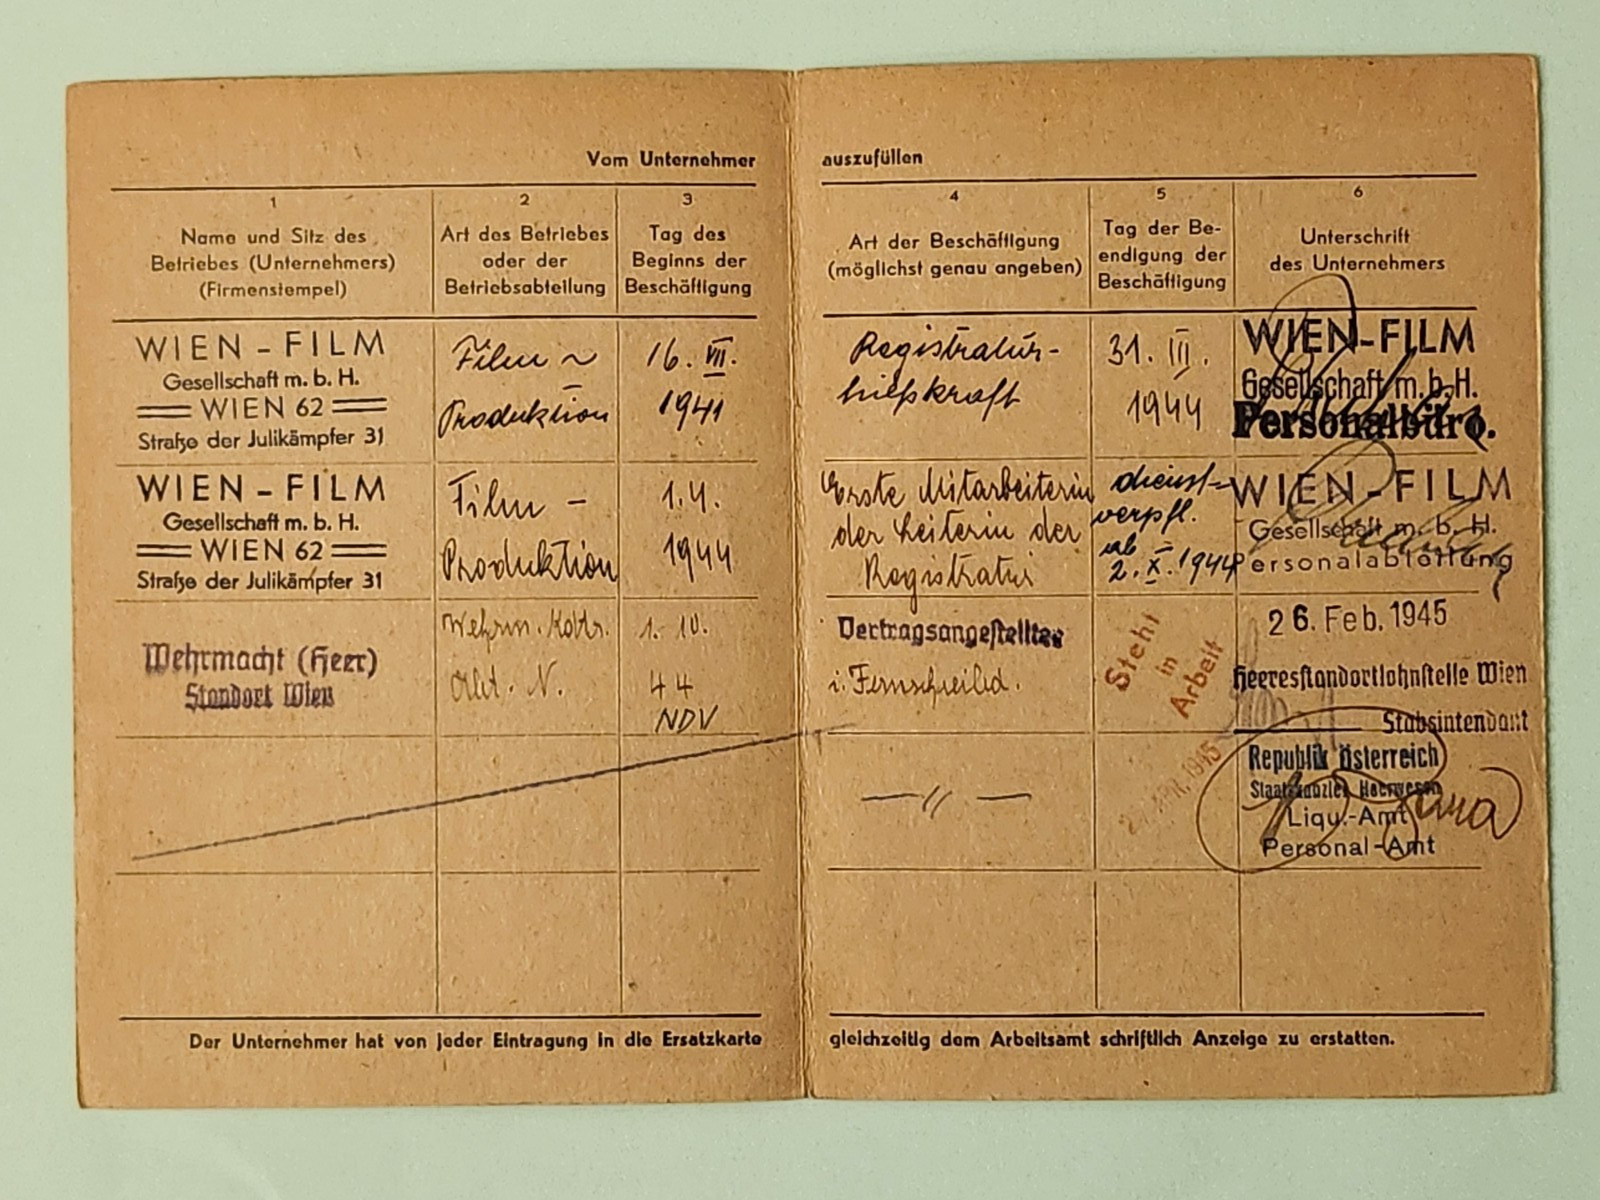 Vom Unternehmer auszufüllen
1
Name und Sitz des
Betriebes (Unternehmers)
(Firmenstempel)
2
Art des Betriebes
oder der
Betriebsabteilung
3
Tag des
Beginns der
Beschäftigung
4
Art der Beschäftigung
(möglichst genau angeben)
5
Tag der Be-
endigung der
Beschäftigung
6
Unterschrift
des Unternehmers
WIEN - FILM
Gesellschaft m. b. H.
WIEN 62
Straße der Julikämpfer 31
Film ~
Produktion
16. VII.
1941
Registratur-
hilfskraft
31. III.
1944
WIEN-FILM
Gesellschaft m. b. H.
Personalbüro.
WIEN - FILM
Gesellschaft m. b. H.
WIEN 62
Straße der Julikämpfer 31
Film -
Produktion
1.4.
1944
Erste Mitarbeiterin
der Leiterin der
Registratur
dienst-
verpfl.
ab
2. X. 1944
WIEN - FILM
Gesellschaft m. b. H.
Personalabteilung
Wehrmacht (Heer)
Standort Wien
Wehrm. Kdtr.
Abt. N.
1. 10.
44
NDV
Vertragsangestellter
i. Fernschreibd.
Steht
in
Arbeit
26. Feb. 1945
Heeresstandortlohnstelle Wien
Stabsintendant
- // -
APR. 1945
Republik Österreich
Staatskanzlei Heerwesen
Liqu.-Amt
Personal-Amt
Der Unternehmer hat von jeder Eintragung in die Ersatzkarte gleichzeitig dem Arbeitsamt schriftlich Anzeige zu erstatten.